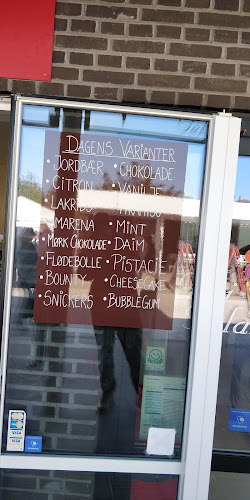 DAGENS VARIANTER
• JORDBÆR
• CITRON
• LAKRIDS
• MARENA
• MØRK CHOKOLADE
• FLØDEBOLLE
• BOUNTY
• SNICKERS
• CHOKOLADE
• VANILJE
• TIRAMISU
• MINT
• DAIM
• PISTACIE
• CHEESECAKE
• BUBBLEGUM
VISA